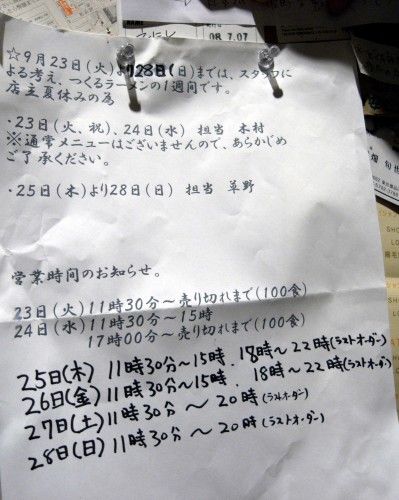 ☆9月23日(火)より28日(日)までは、スタッフに
よる考え、つくるラーメンの1週間です。
店主夏休みの為
・23日(火、祝)、24日(水) 担当 木村
※通常メニューはございませんので、あらかじめ
ご了承ください。
・25日(木)より28日(日) 担当 草野
営業時間のお知らせ。
23日(火)11時30分～売り切れまで(100食)
24日(水)11時30分～15時
17時00分～売り切れまで(100食)
25日(木) 11時30分～15時. 18時～22時(ラストオーダー)
26日(金) 11時30分～15時. 18時～22時(ラストオーダー)
27日(土) 11時30分 ～ 20時(ラストオーダー)
28日(日) 11時30分 ～ 20時(ラストオーダー)
08.7.07